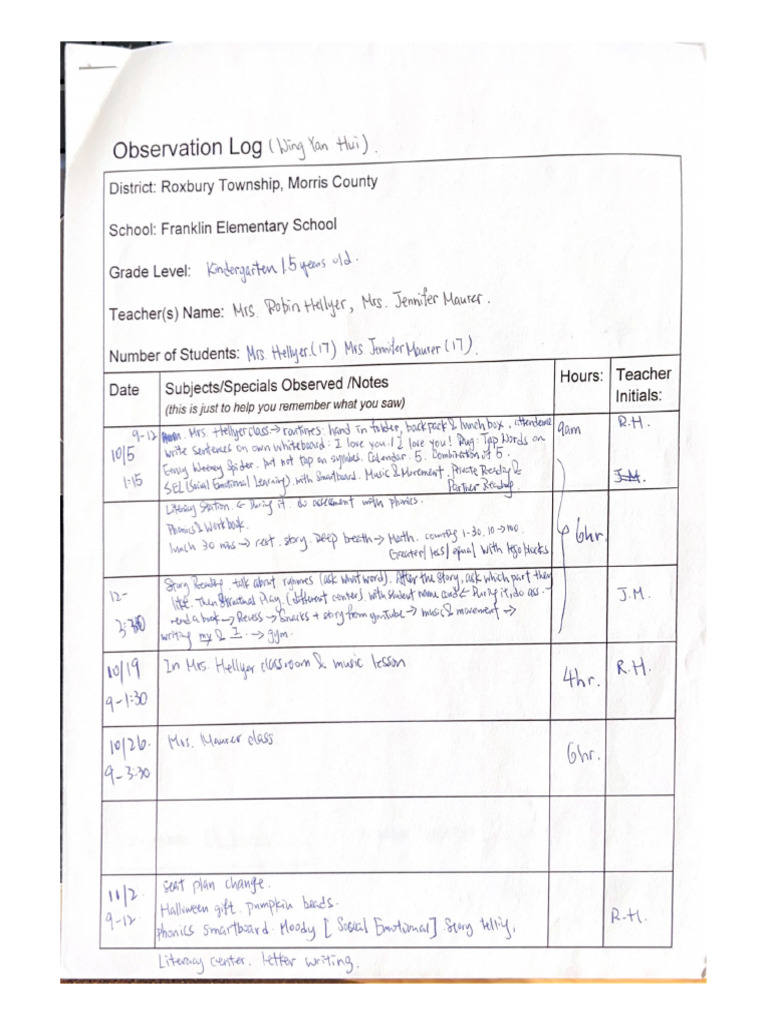 Observation Log (Wing Yan Hui).
District: Roxbury Township, Morris County
School: Franklin Elementary School
Grade Level: Kindergarten 1.5 years old.
Teacher(s) Name: Mrs. Robin Hellyer, Mrs. Jennifer Maurer.
Number of Students: Mrs. Hellyer.(17) Mrs Jennifer Maurer (17).
Date Subjects/Specials Observed /Notes Hours: Teacher Initials:
(this is just to help you remember what you saw)
9-12 Mrs. Hellyer class → routines: hand in folder, backpack & lunch box, attendance 9am R.H.
10/5 write sentences on own whiteboard: I love you. I love you! Rug: Tap Words on
Eency Weency Spider. but not tap on syllables. Calendar. 5. Combination of 5.
1:15 SEL (Social Emotional Learning) with Smartboard. Music & Movement. Private Reading & J.M.
Partner Reading.
Literacy Station. ← During it. do assessment with phonics.
Phonics & Workbook.
lunch 30 mins → rest. story. Deep breath → Math. counting 1-30, 10 → 100. 6hr.
Greater/less/equal with lego blocks
12- Story Reading, talk about rhymes (ask what word). After the story, ask which part they J.M.
like. Then Structual Play. (different center) with student name card ← During it, do ass.-
3:30 read a book → Recess → Snacks + story from youTube → music & movement →
writing my & I. → gym.
10/19 In Mrs. Hellyer classroom & music lesson 4hr. R.H.
9-1:30
10/26. Mrs. Maurer class 6hr.
9-3:30
11/2 Seat plan change.
Halloween gift. pumpkin beads.
9-12 phonics smartboard. Moody [Social Emotional] Story telling, R.H.
Literacy center. letter writing.